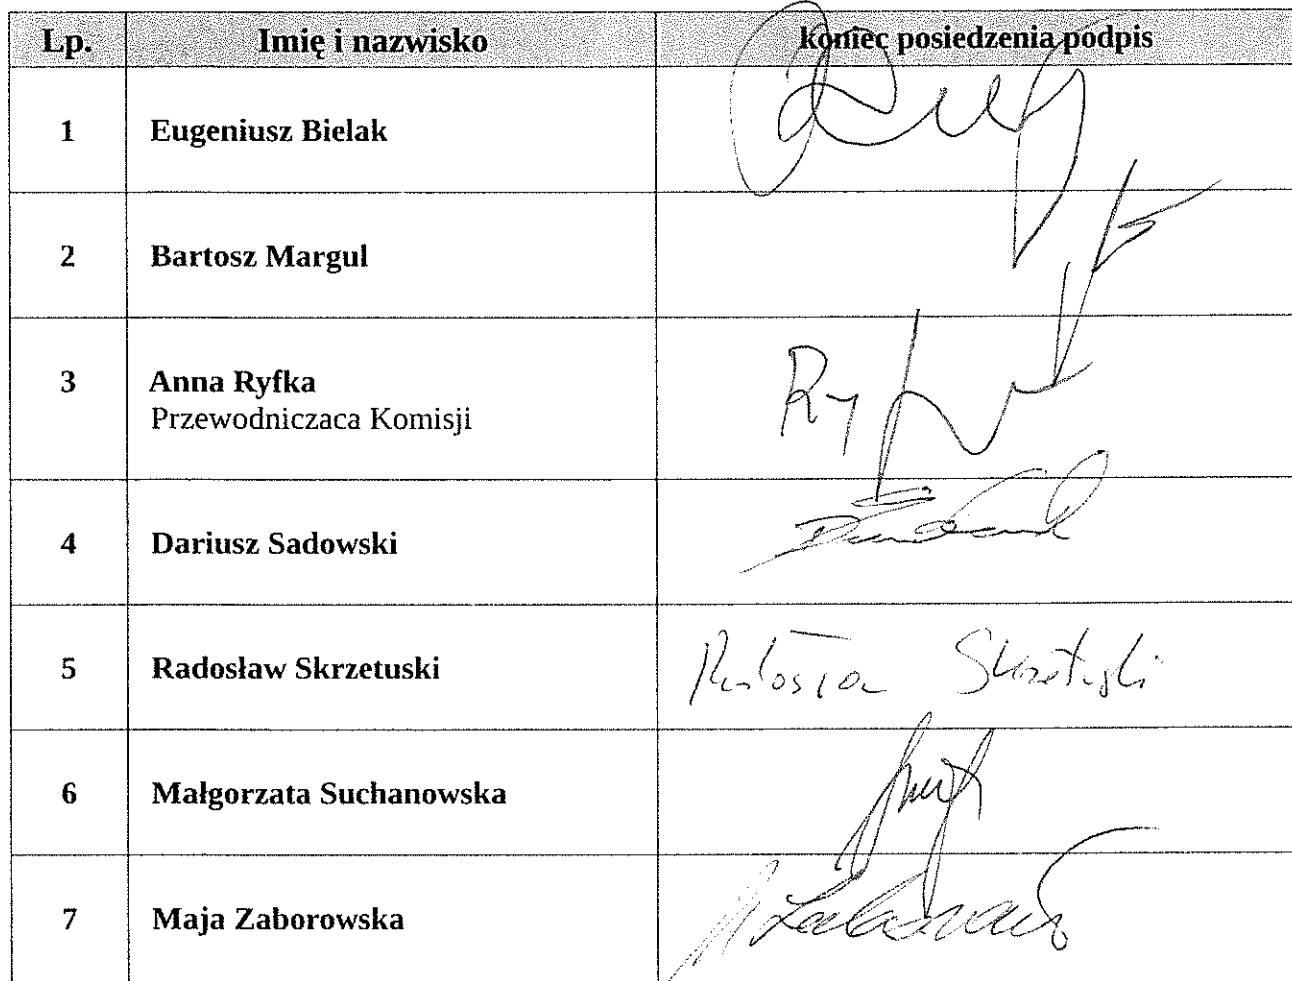 Lp. Imię i nazwisko koniec posiedzenia podpis
1 Eugeniusz Bielak
2 Bartosz Margul
3 Anna Ryfka
Przewodniczaca Komisji
4 Dariusz Sadowski
5 Radosław Skrzetuski Skrzetuski
6 Małgorzata Suchanowska
7 Maja Zaborowska